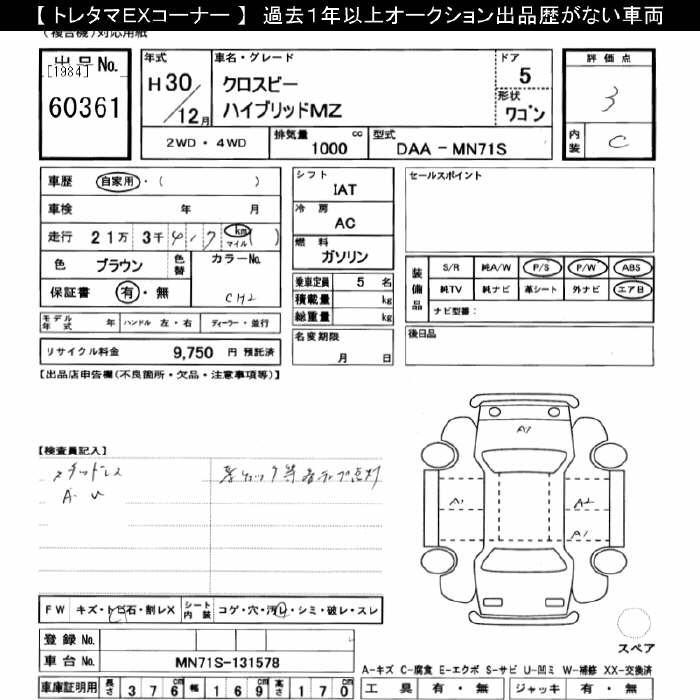 【 トレタマEXコーナー 】 過去1年以上オークション出品歴がない車両
(複合機)対応用紙
出品No.
[1984]
60361
年式
H30/12月
車名・グレード
クロスビー
ハイブリッドMZ
ドア
5
形状
ワゴン
評価点
3
内装
C
2WD・4WD
排気量
1000 cc
型式
DAA - MN71S
車歴 自家用・( )
車検 年 月
走行 21万 3千 km マイル ( )
色 ブラウン 色替 カラーNo.
保証書 有・無 CH2
モデル年式 年 ハンドル 左・右 ディーラー・並行
リサイクル料金 9,750 円 預託済
シフト
IAT
冷房
AC
燃料
ガソリン
乗車定員 5 名
積載量 kg
総重量 kg
名変期限
月 日
セールスポイント
装備品
S/R 純A/W P/S P/W ABS
純TV 純ナビ 革シート 外ナビ エアB
ナビ型番:
後日品
【出品店申告欄(不良箇所・欠品・注意事項等)】
【検査員記入】
スタッドレス
A・U
A1
A1
A2
A1
FW キズ・トビ石・割レX シート内装 コゲ・穴・汚レ・シミ・破レ・スレ
登録 No.
車台 No. MN71S-131578
車庫証明用 長さ 376cm 幅 169cm 高さ 170cm
スペア
A-キズ C-腐食 E-エクボ S-サビ U-凹ミ W-補修 XX-交換済
工具 有・無 ジャッキ 有・無